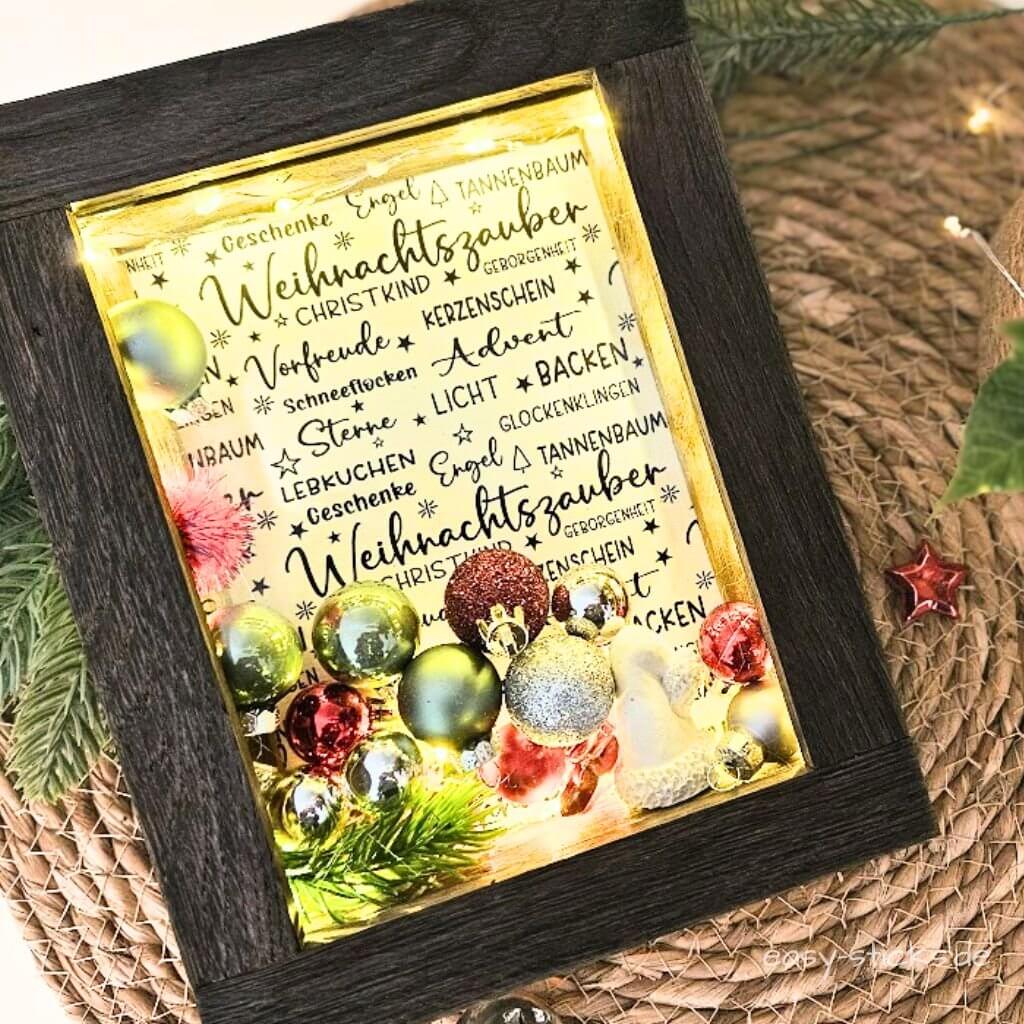 Geschenke Engel TANNENBAUM
NHEIT Weihnachtszauber
CHRISTKIND GEBORGENHEIT
Vorfreude KERZENSCHEIN
EN Schneeflocken Advent
NGEN Sterne LICHT BACKEN
NBAUM LEBKUCHEN GLOCKENKLINGEN
Geschenke Engel TANNENBAUM
Weihnachtszauber
CHRISTKIND GEBORGENHEIT
ENSCHEIN
BACKEN
easy-sticks.de